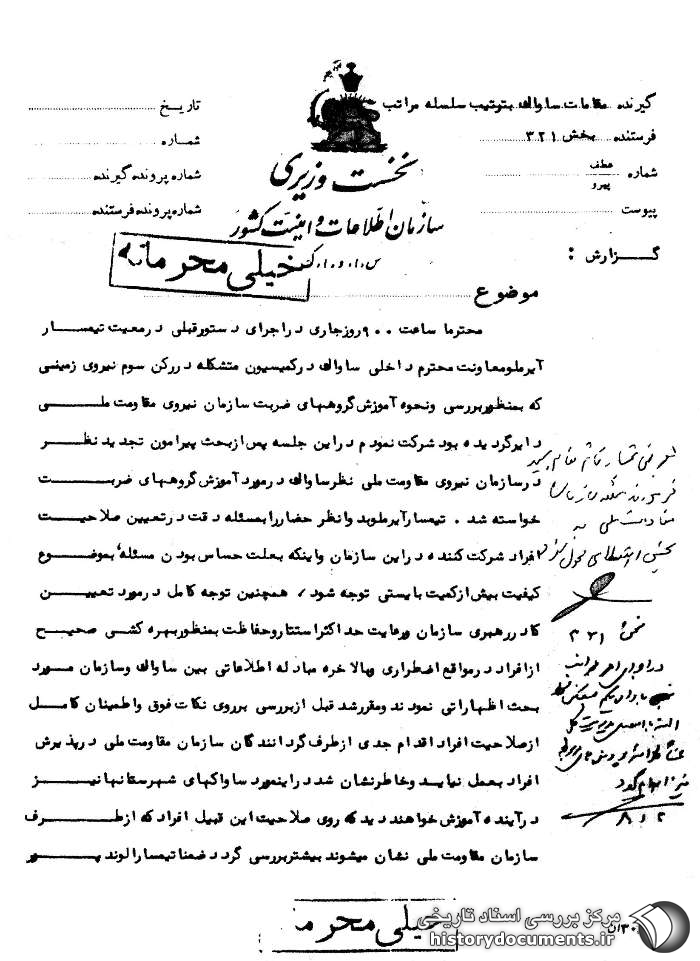 گیرنده مقامات ساواک بترتیب سلسله مراتب
فرستنده بخش ۳۲۱
شماره عطف
پیرو
پیوست
گزارش :
تاریخ
شماره
شماره پرونده گیرنده
شماره پرونده فرستنده
نخست وزیری
سازمان اطلاعات و امنیت کشور
س.ا.و.ا.ک
خیلی محرمانه
موضوع
محترما ساعت ۹۰۰ روز جاری در اجرای دستور قبلی در معیت تیمسار
آیرملو معاونت محترم داخلی ساواک در کمیسیون متشکله در رکن سوم نیروی زمینی
که بمنظور بررسی و نحوه آموزش گروههای ضربت سازمان نیروی مقاومت ملی
دایر گردیده بود شرکت نمودم در این جلسه پس از بحث پیرامون تجدید نظر
در سازمان نیروی مقاومت ملی نظر ساواک در مورد آموزش گروههای ضربت
خواسته شد . تیمسار آیرملو بدوا نظر حضار را بمسئله دقت در تعیین صلاحیت
افراد شرکت کننده در این سازمان و اینکه بعلت حساس بودن مسئله بموضوع
کیفیت بیش از کمیت بایستی توجه شود ، همچنین توجه کامل در مورد تعیین
کادر رهبری سازمان و رعایت حداکثر استتار و حفاظت بمنظور بهره کشی صحیح
از افراد در مواقع اضطراری و بالاخره مبادله اطلاعاتی بین ساواک و سازمان مورد
بحث اظهاراتی نمودند و مقرر شد قبل از بررسی بر روی نکات فوق و اطمینان کامل
از صلاحیت افراد اقدام جدی از طرف گردانندگان سازمان مقاومت ملی در پذیرش
افراد بعمل نیاید و خاطر نشان شد در اینمورد ساواکهای شهرستانها نیز
در آینده آموزش خواهند دید که روی صلاحیت این قبیل افراد که از طرف
سازمان مقاومت ملی نشان میشوند بیشتر بررسی گردد ضمنا تیمسار الوند پور
بعرض تیمسار قائم مقام رسید
فرمودند مسئله سازمان
مقاومت ملی به
بخش ۳۲۱
در اجرای اوامر
۸/۲
خیلی محرمانه
مرکز بررسی اسناد تاریخی
historydocuments.ir